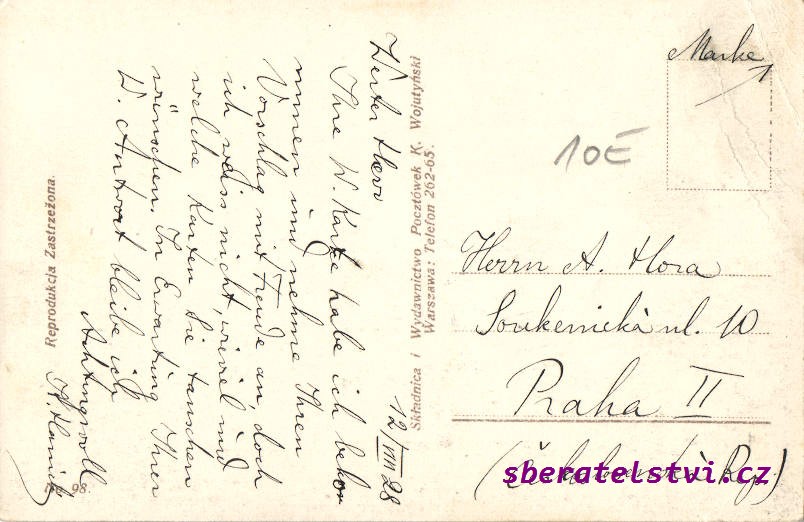 12/VIII 28
Werter Herr
Ihre W. Karte habe ich bekom
mmen und nehme Ihren
Vorschlag mit Freude an, doch
ich weiss nicht, wieviel und
welche Karten Sie tauschen
wünschen. In Erwartung Ihrer
W. Antwort bleibe ich
Achtungsvoll
Reprodukcja Zastrzeżona.
No 98.
Składnica i Wydawnictwo Pocztówek K. Wojutyński
Warszawa: Telefon 262-65.
Marke
10E
Herrn A. Hora
Soukenická ul. 10
Praha II
(Československá Rep.)
sberatelstvi.cz